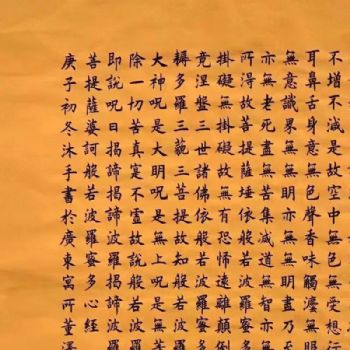 不增不減是故空中無色無受想行
耳鼻舌身意無色聲香味觸法無眼
無意識界無無明亦無無明盡乃至
亦無老死盡無苦集滅道無智亦無
所得故菩提薩埵依般若波羅蜜多
掛礙無掛礙故無有恐怖遠離顛倒
竟涅槃三世諸佛依般若波羅蜜多
耨多羅三藐三菩提故知般若波羅
大神呪是大明呪是無上呪是無
除一切苦真實不虛故說般若波羅
即說呪曰揭諦揭諦波羅揭諦波羅
菩提薩婆訶般若波羅蜜多心經
庚子初冬沐手書於廣東寓所董澤